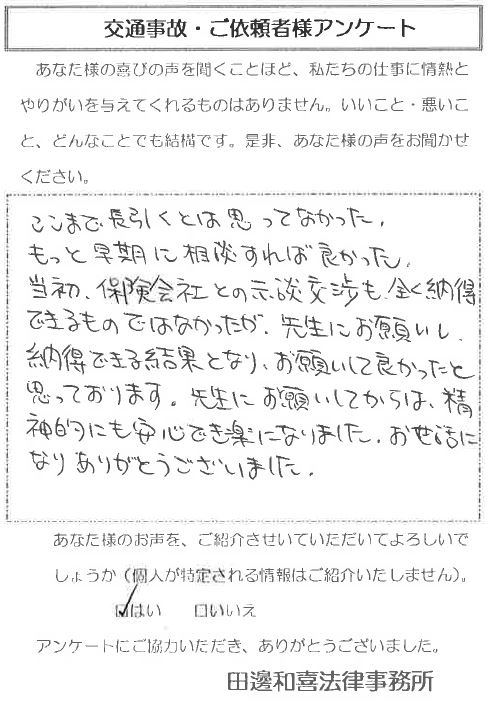 交通事故・ご依頼者様アンケート
あなた様の喜びの声を聞くことほど、私たちの仕事に情熱と
やりがいを与えてくれるものはありません。いいこと・悪いこ
と、どんなことでも結構です。是非、あなた様の声をお聞かせ
ください。
ここまで長引くとは思ってなかった。
もっと早期に相談すれば良かった。
当初、保険会社との示談交渉も、全く納得
できるものではなかったが、先生にお願いし、
納得できる結果となり、お願いして良かったと
思っております。先生にお願いしてからは、精
神的にも安心でき楽になりました。お世話に
なりありがとうございました。
あなた様のお声を、ご紹介させいていただいてよろしいで
しょうか（個人が特定される情報はご紹介いたしません）。
☑はい　□いいえ
アンケートにご協力いただき、ありがとうございました。
田邊和喜法律事務所